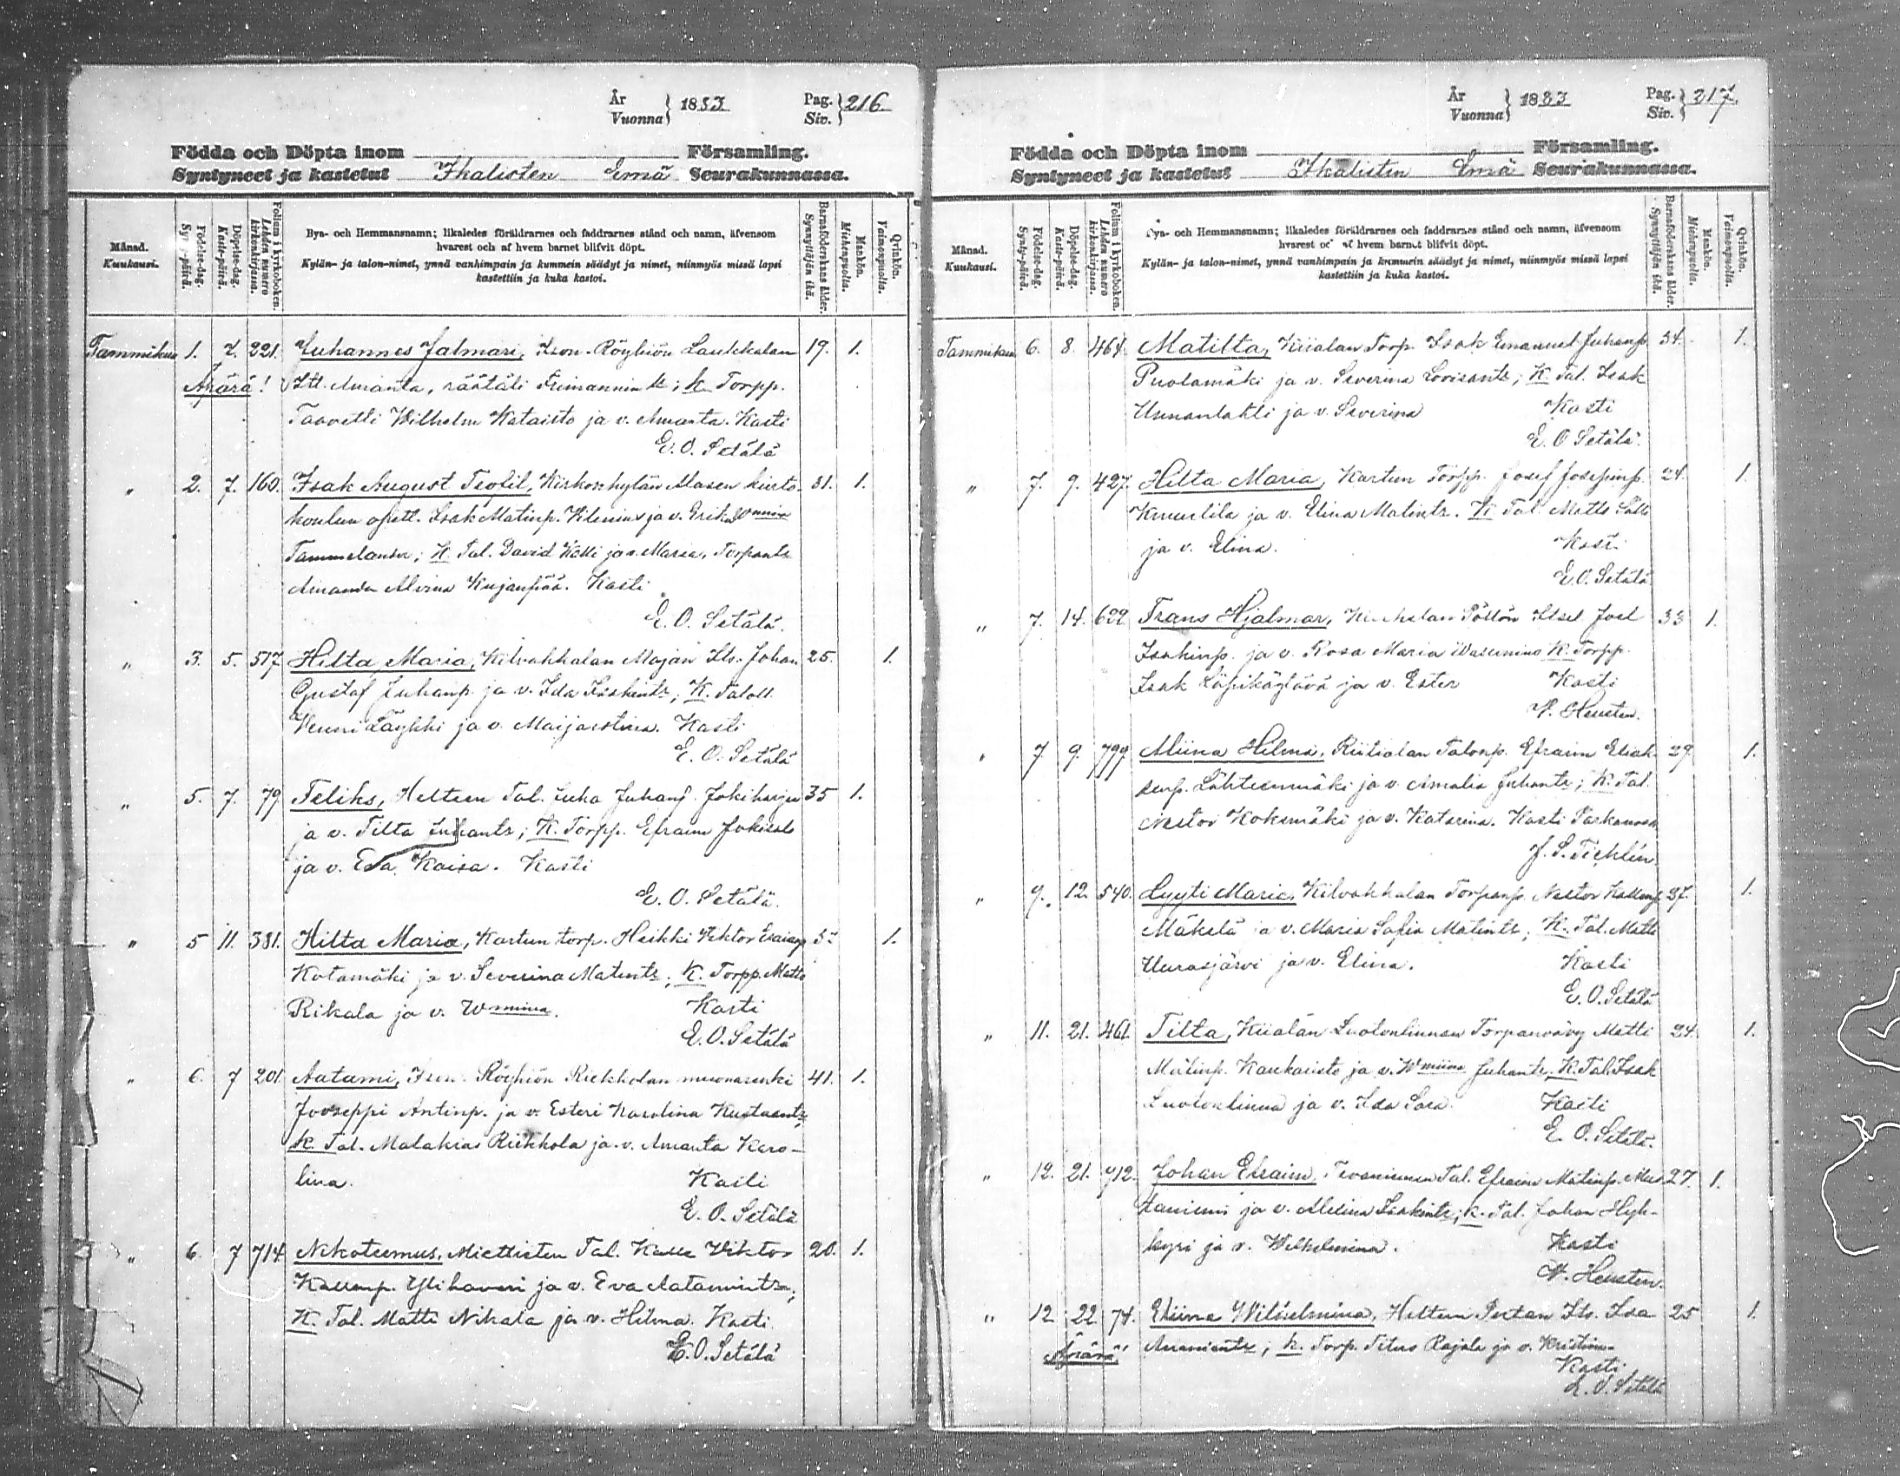 År
Vuonna } 1883 Pag.
Siv. } 216
Födda och Döpta inom Församling.
Syntyneet ja kastetut Ikalisten Emä Seurakunnassa.
Månad.
Kuukausi.
Födelse-dag.
Synty-päivä.
Döpelse-dag.
Kaste-päivä.
Folium i kyrkoboken.
Lehden numero kirkonkirjassa.
Bya- och Hemmansnamn; likaledes föräldrarnes och faddrarnes stånd och namn, äfvensom
hvarest och af hvem barnet blifvit döpt.
Kylän- ja talon-nimet, ynnä vanhimpain ja kummein säädyt ja nimet, niinmyös missä lapsi
kastettiin ja kuka kastoi.
Barnaföderskans ålder.
Synnyttäjän ikä.
Mankön.
Miehenpuolta.
Qvinkön.
Vaimonpuolta.
Tammikuu 1. 7. 221. Juhannes Jalmari, Ison-Röyhiön 19. 1.
Äpärä! Itt. Amanta, räätäli k; k. Torpp.
Taavetti Wilhelm Kataisto ja v. Amanta. Kasti
E. O. Setälä
" 2. 7. 160. Isak August Teofil, Kirkonkylän Masen kierto- 31. 1.
koulun opett. Isak Matinp. Vilenius ja v. Erika Wmina
Tammelander; K. Tal. David Kätti ja v. Maria, Torpantr
Amanda Alvina Kujanpää. Kasti
E. O. Setälä.
" 3. 5. 517 Hilta Maria, Kilvakkalan Majan Its. Johan 25. 1.
Gustaf Juhanp. ja v. Ida Isakintr; K. Taloll.
Venni Läykki ja v. Maijastina. Kasti
E. O. Setälä
" 5. 7. 79 Feliks, Heltteen Tal. Juha Juhanp. Jokiharju 35 1.
ja v. Tilta Juhantr; K. Torpp. Efraim Jokisalo
ja v. Eva Kaisa. Kasti
E. O. Setälä.
" 5 11. 381. Hilta Maria, Kartun torp. Heikki Viktor Esaiasp 1.
Kotamäki ja v. Severina Matintr; K. Torpp. Matti
Rikala ja v. Wmina. Kasti
E. O. Setälä
" 6. 7 201 Aatami, Ison-Röyhiön Riekkolan muonarenki 41. 1.
Jooseppi Antinp. ja v. Esteri Karolina Kustaantr
k. Tal. Malakias Riekkola ja v. Amanta Karo-
lina. Kasti
E. O. Setälä
" 6. 7 714 Nikoteemus, Miettisten Tal. Kalle Viktor 20. 1.
Kallenp. Ylihaveri ja v. Eva Aatamintr;
K. Tal. Matti Nikala ja v. Hilma. Kasti
E. O. Setälä
År
Vuonna } 1883 Pag.
Siv. } 217.
Födda och Döpta inom Församling.
Syntyneet ja kastetut Ikalisten Emä Seurakunnassa.
Månad.
Kuukausi.
Födelse-dag.
Synty-päivä.
Döpelse-dag.
Kaste-päivä.
Folium i kyrkoboken.
Lehden numero kirkonkirjassa.
Bya- och Hemmansnamn; likaledes föräldrarnes och faddrarnes stånd och namn, äfvensom
hvarest och af hvem barnet blifvit döpt.
Kylän- ja talon-nimet, ynnä vanhimpain ja kummein säädyt ja nimet, niinmyös missä lapsi
kastettiin ja kuka kastoi.
Barnaföderskans ålder.
Synnyttäjän ikä.
Mankön.
Miehenpuolta.
Qvinkön.
Vaimonpuolta.
Tammikuu 6. 8. 464. Matilta, Kiialan Torp. Isak Emanuel Juhanp. 34. 1.
Puolamäki ja v. Severina Lovisantr; K Tal. Isak
Uunanlahti ja v. Severina Kasti
E. O Setälä.
" 7. 9. 427. Hilta Maria, Kartun Torpp. Josef Josefinp. 24. 1.
ja v. Elina Matintr. K Tal. Matti
ja v. Elina. Kasti
E. O. Setälä
" 7. 14. 622 Frans Hjalmar, Pöllön Itsel. Joel 33 1.
Isakinp. ja v. Rosa Maria K. Torpp.
Isak Läpikäytävä ja v. Ester Kasti
W. Heusten.
" 7 9. 799 Miina Hilma, Riitialan Talonp. Efraim Eliak- 29. 1.
senp. Lähteenmäki ja v. Amalia Juhantr; K. Tal.
Nestor Kokemäki ja v. Katarina. Kasti Parkanossa
J. S. Ticklén.
" 9. 12. 540. Lyyti Maria, Kilvakkalan Torpanp. Nestor Kallenp 37. 1.
Mäkelä ja v. Maria Sofia Matintr; K. Tal. Matti
Uurasjärvi ja v. Elina. Kasti
E. O. Setälä
" 11. 21. 461. Tilta, Kiialan Luotonlinnan Torpanvävy Matti 24. 1.
Matinp. Kankaisto ja v. Wmiina Juhantr. K. Tal. Isak
Luotonlinna ja v. Ida Sara. Kasti
E. O. Setälä.
" 12. 21. 712. Johan Efraim, Tevaniemen Tal. Efraim Matinp. Mus- 27. 1.
taniemi ja v. Alviina Isakintr; k. Tal. Johan Hyh-
kyri ja v. Wilhelmina. Kasti
W. Heusten.
" 12 22. 74. Eliina Wilhelmina, Heltteen Its. Isa 25 1.
Äpärä! ; k. Torp. Titus Rajala ja v. Kristina
Kasti
E. O. Setälä